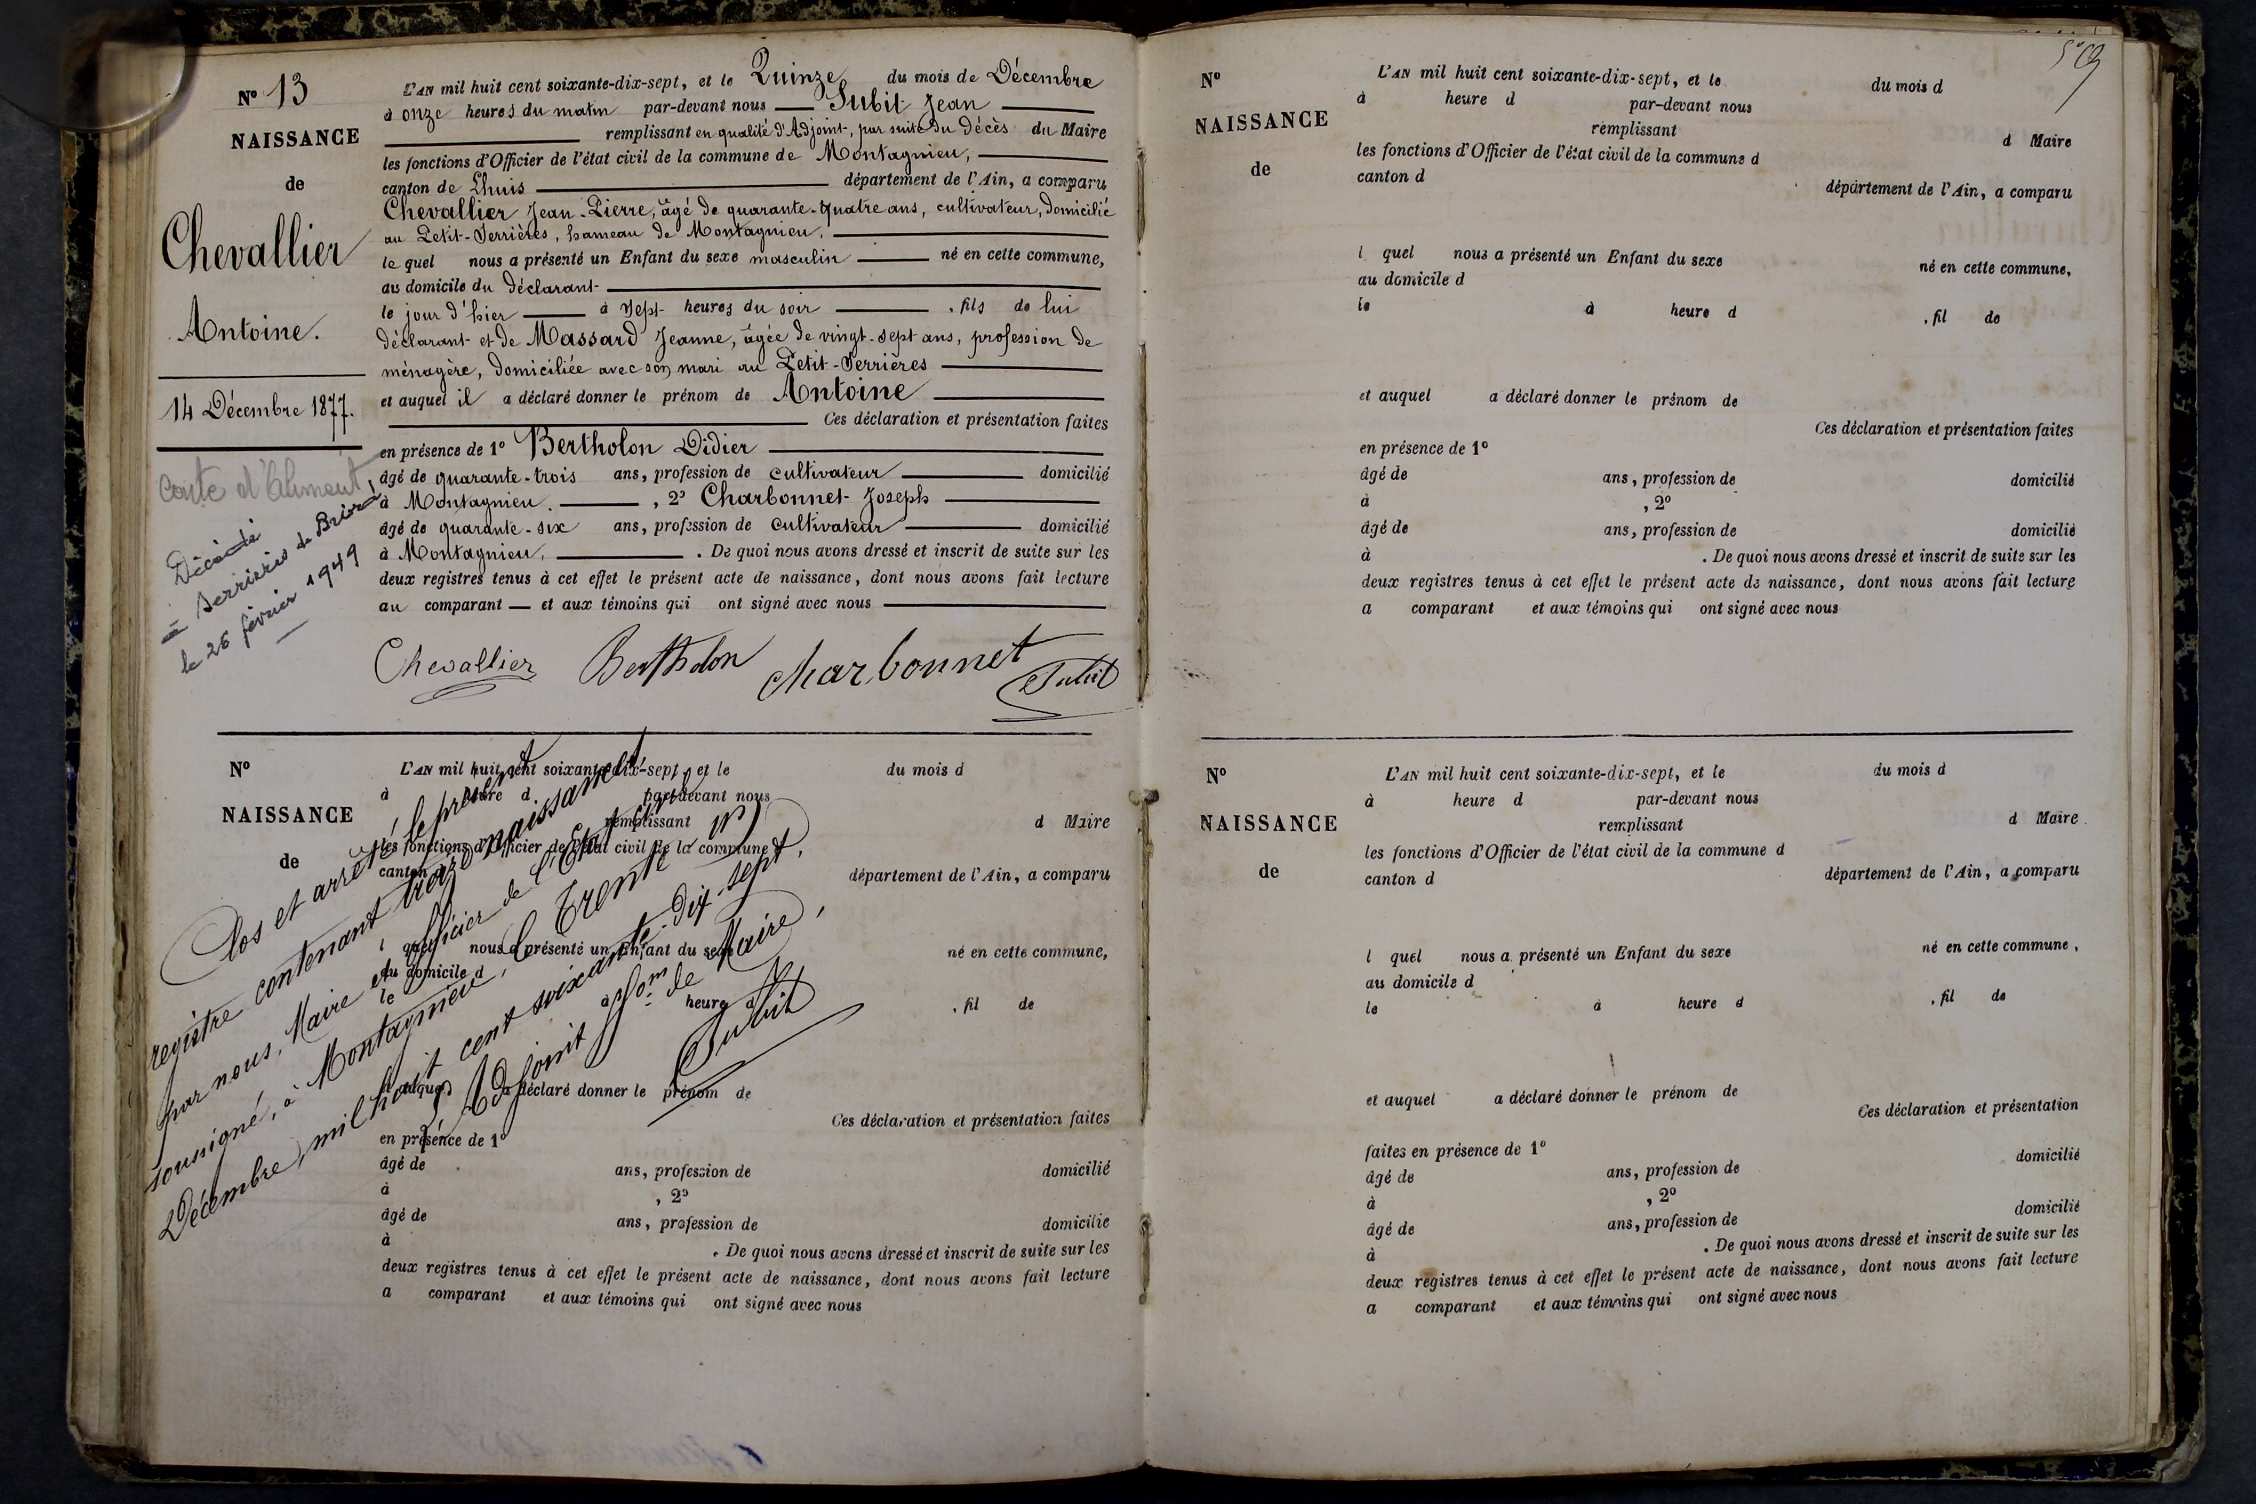 N° 13
NAISSANCE
de
Chevallier
Antoine.
14 Décembre 1877.
Carte d'Aliment,
Décédé
à Serrières de Briord
le 26 février 1949
L'AN mil huit cent soixante-dix-sept, et le Quinze du mois de Décembre
à onze heures du matin par-devant nous Subit Jean
remplissant en qualité d'Adjoint, par suite du décès du Maire
les fonctions d'Officier de l'état civil de la commune de Montagnieu,
canton de Lhuis département de l'Ain, a comparu
Chevallier Jean-Pierre, âgé de quarante-quatre ans, cultivateur, domicilié
au Petit-Serrières, hameau de Montagnieu.
le quel nous a présenté un Enfant du sexe masculin né en cette commune,
au domicile du déclarant
le jour d'hier à sept heures du soir , fils de lui
déclarant et de Massard Jeanne, âgée de vingt-sept ans, profession de
ménagère, domiciliée avec son mari au Petit-Serrières
et auquel il a déclaré donner le prénom de Antoine
Ces déclaration et présentation faites
en présence de 1° Bertholon Didier
âgé de quarante-trois ans, profession de cultivateur domicilié
à Montagnieu. , 2° Charbonnet Joseph
âgé de quarante-six ans, profession de cultivateur domicilié
à Montagnieu. . De quoi nous avons dressé et inscrit de suite sur les
deux registres tenus à cet effet le présent acte de naissance, dont nous avons fait lecture
au comparant et aux témoins qui ont signé avec nous
Chevallier Bertholon Charbonnet Subit
N°
NAISSANCE
de
L'AN mil huit cent soixante-dix-sept, et le du mois d
à heure d par-devant nous
remplissant d Maire
les fonctions d'Officier de l'état civil de la commune d
canton d département de l'Ain, a comparu
l quel nous a présenté un Enfant du sexe né en cette commune,
au domicile d
le à heure d , fil de
et auquel a déclaré donner le prénom de
Ces déclaration et présentation faites
en présence de 1°
âgé de ans, profession de domicilié
à , 2°
âgé de ans, profession de domicilié
à . De quoi nous avons dressé et inscrit de suite sur les
deux registres tenus à cet effet le présent acte de naissance, dont nous avons fait lecture
a comparant et aux témoins qui ont signé avec nous
Clos et arrêté le présent
registre contenant treize naissances
par nous, Maire et officier de l'Etat civil
soussigné, à Montagnieu, le trente un
Décembre mil huit cent soixante-dix-sept.
L'Adjoint de Maire,
Subit
N°
NAISSANCE
de
L'AN mil huit cent soixante-dix-sept, et le du mois d
à heure d par-devant nous
remplissant d Maire
les fonctions d'Officier de l'état civil de la commune d
canton d département de l'Ain, a comparu
l quel nous a présenté un Enfant du sexe né en cette commune,
au domicile d
le à heure d , fil de
et auquel a déclaré donner le prénom de
Ces déclaration et présentation faites
en présence de 1°
âgé de ans, profession de domicilié
à , 2°
âgé de ans, profession de domicilié
à . De quoi nous avons dressé et inscrit de suite sur les
deux registres tenus à cet effet le présent acte de naissance, dont nous avons fait lecture
a comparant et aux témoins qui ont signé avec nous
N°
NAISSANCE
de
L'AN mil huit cent soixante-dix-sept, et le du mois d
à heure d par-devant nous
remplissant d Maire
les fonctions d'Officier de l'état civil de la commune d
canton d département de l'Ain, a comparu
l quel nous a présenté un Enfant du sexe né en cette commune,
au domicile d
le à heure d , fil de
et auquel a déclaré donner le prénom de
Ces déclaration et présentation
faites en présence de 1° domicilié
âgé de ans, profession de
à , 2° domicilié
âgé de ans, profession de
à . De quoi nous avons dressé et inscrit de suite sur les
deux registres tenus à cet effet le présent acte de naissance, dont nous avons fait lecture
a comparant et aux témoins qui ont signé avec nous